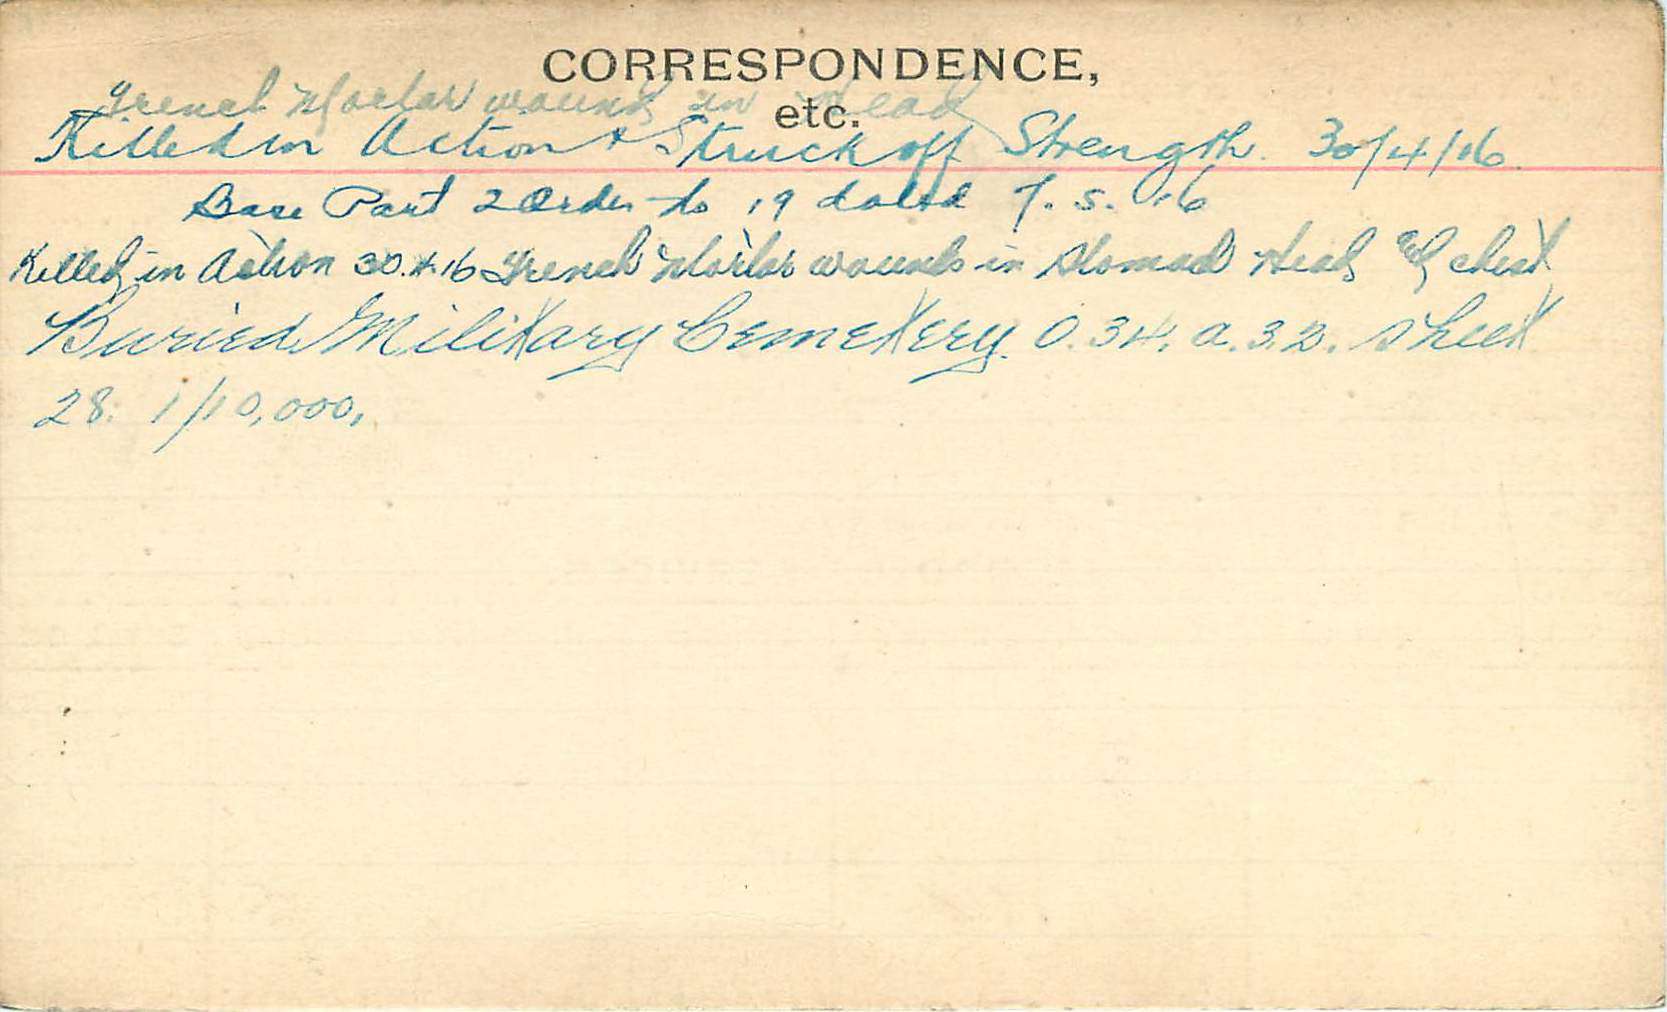 CORRESPONDENCE,
etc.
Trench Mortar wound in Head
Killed in Action & Struck off Strength. 30/4/16.
Base Part 2 Order No 19 dated 7.5.16
Killed in Action 30.4.16 Trench Mortar wounds in Stomach Head & chest
Buried Military Cemetery. O.34.a.3.2. Sheet
28. 1/10,000.